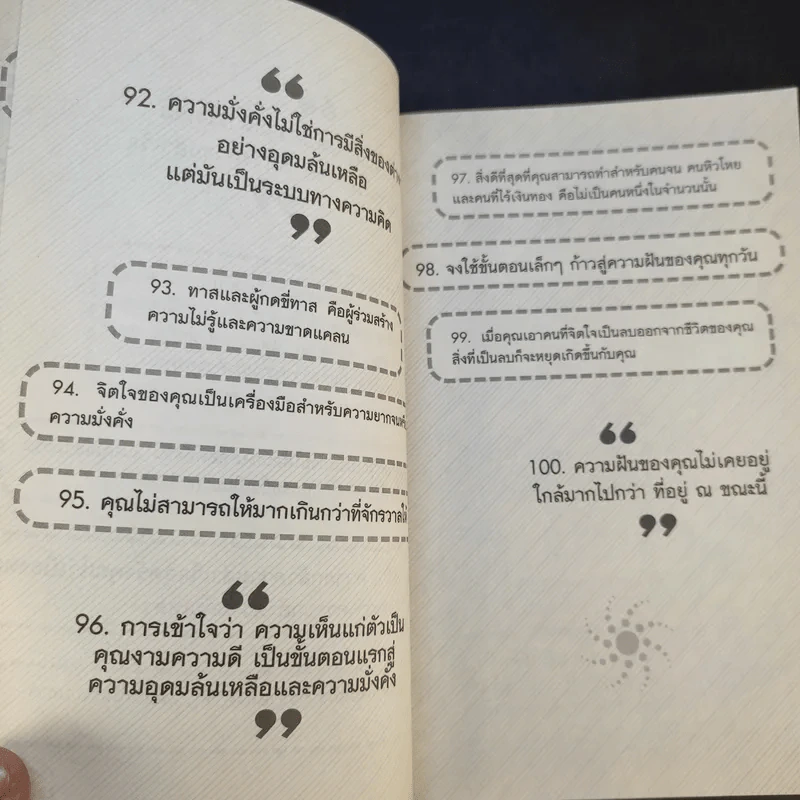 92. ความมั่งคั่งไม่ใช่การมีสิ่งของ
อย่างอุดมล้นเหลือ
แต่มันเป็นระบบทางความคิด
93. ทาสและผู้กดขี่ทาส คือผู้ร่วมสร้าง
ความไม่รู้และความขาดแคลน
94. จิตใจของคุณเป็นเครื่องมือสำหรับความยากจน
ความมั่งคั่ง
95. คุณไม่สามารถให้มากเกินกว่าที่จักรวาลให้
96. การเข้าใจว่า ความเห็นแก่ตัวเป็น
คุณงามความดี เป็นขั้นตอนแรกสู่
ความอุดมล้นเหลือและความมั่งคั่ง
97. สิ่งดีที่สุดที่คุณสามารถทำสำหรับคนจน คนหิวโหย
และคนที่ไร้เงินทอง คือไม่เป็นคนหนึ่งในจำนวนนั้น
98. จงใช้ขั้นตอนเล็กๆ ก้าวสู่ความฝันของคุณทุกวัน
99. เมื่อคุณเอาคนที่จิตใจเป็นลบออกจากชีวิตของคุณ
สิ่งที่เป็นลบก็จะหยุดเกิดขึ้นกับคุณ
100. ความฝันของคุณไม่เคยอยู่
ใกล้มากไปกว่า ที่อยู่ ณ ขณะนี้